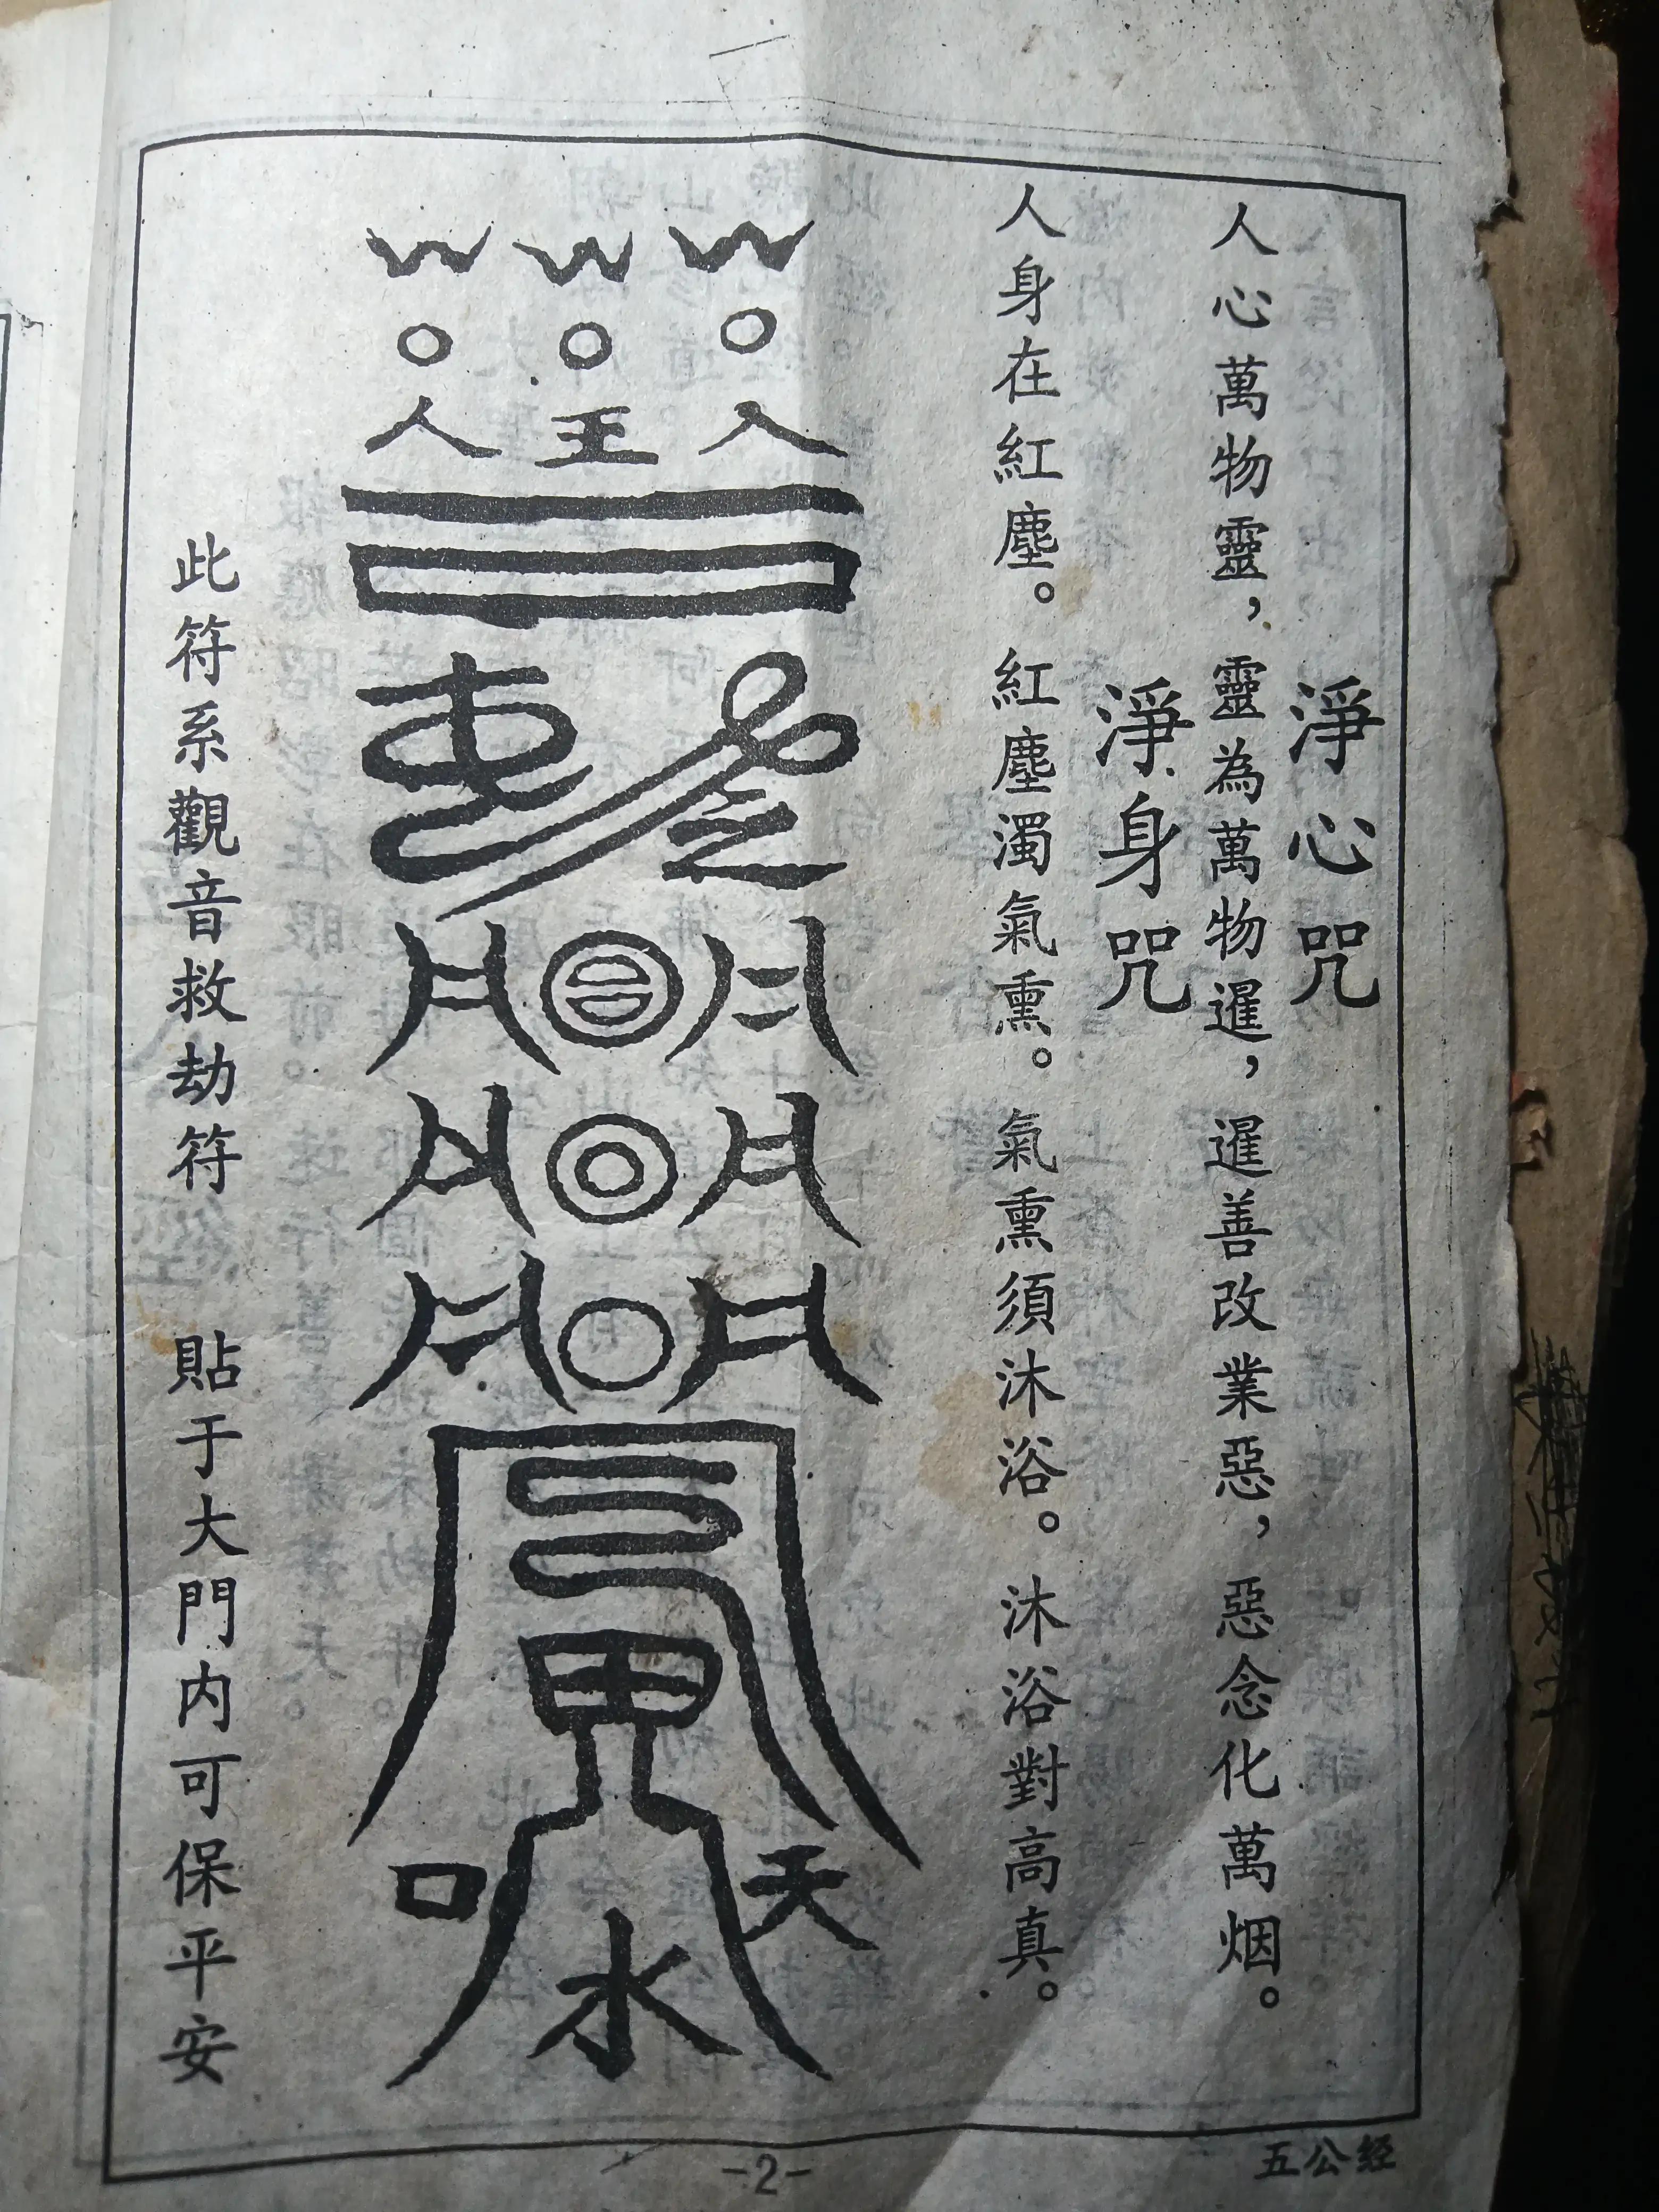 淨心咒
人心萬物靈，靈為萬物暹，暹善改業惡，惡念化萬烟。
淨身咒
人身在紅塵。紅塵濁氣熏。氣熏須沐浴。沐浴對高真。
人王人
天
口
水
此符系觀音救劫符 貼于大門内可保平安
-2-
五公经